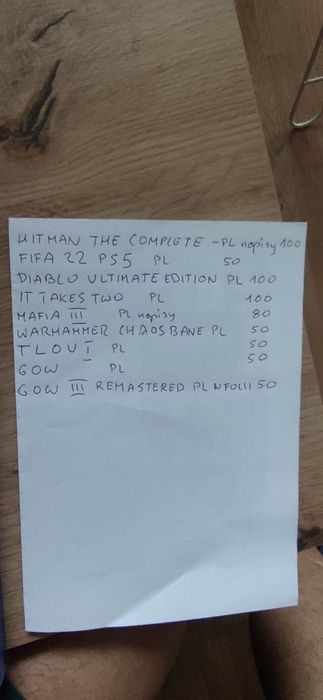 HITMAN THE COMPLETE - PL napisy 100
FIFA 22 PS5 PL 50
DIABLO ULTIMATE EDITION PL 100
IT TAKES TWO PL 100
MAFIA III PL napisy 80
WARHAMMER CHAOSBANE PL 50
TLOU I PL 50
GOW PL 50
GOW III REMASTERED PL W FOLII 50